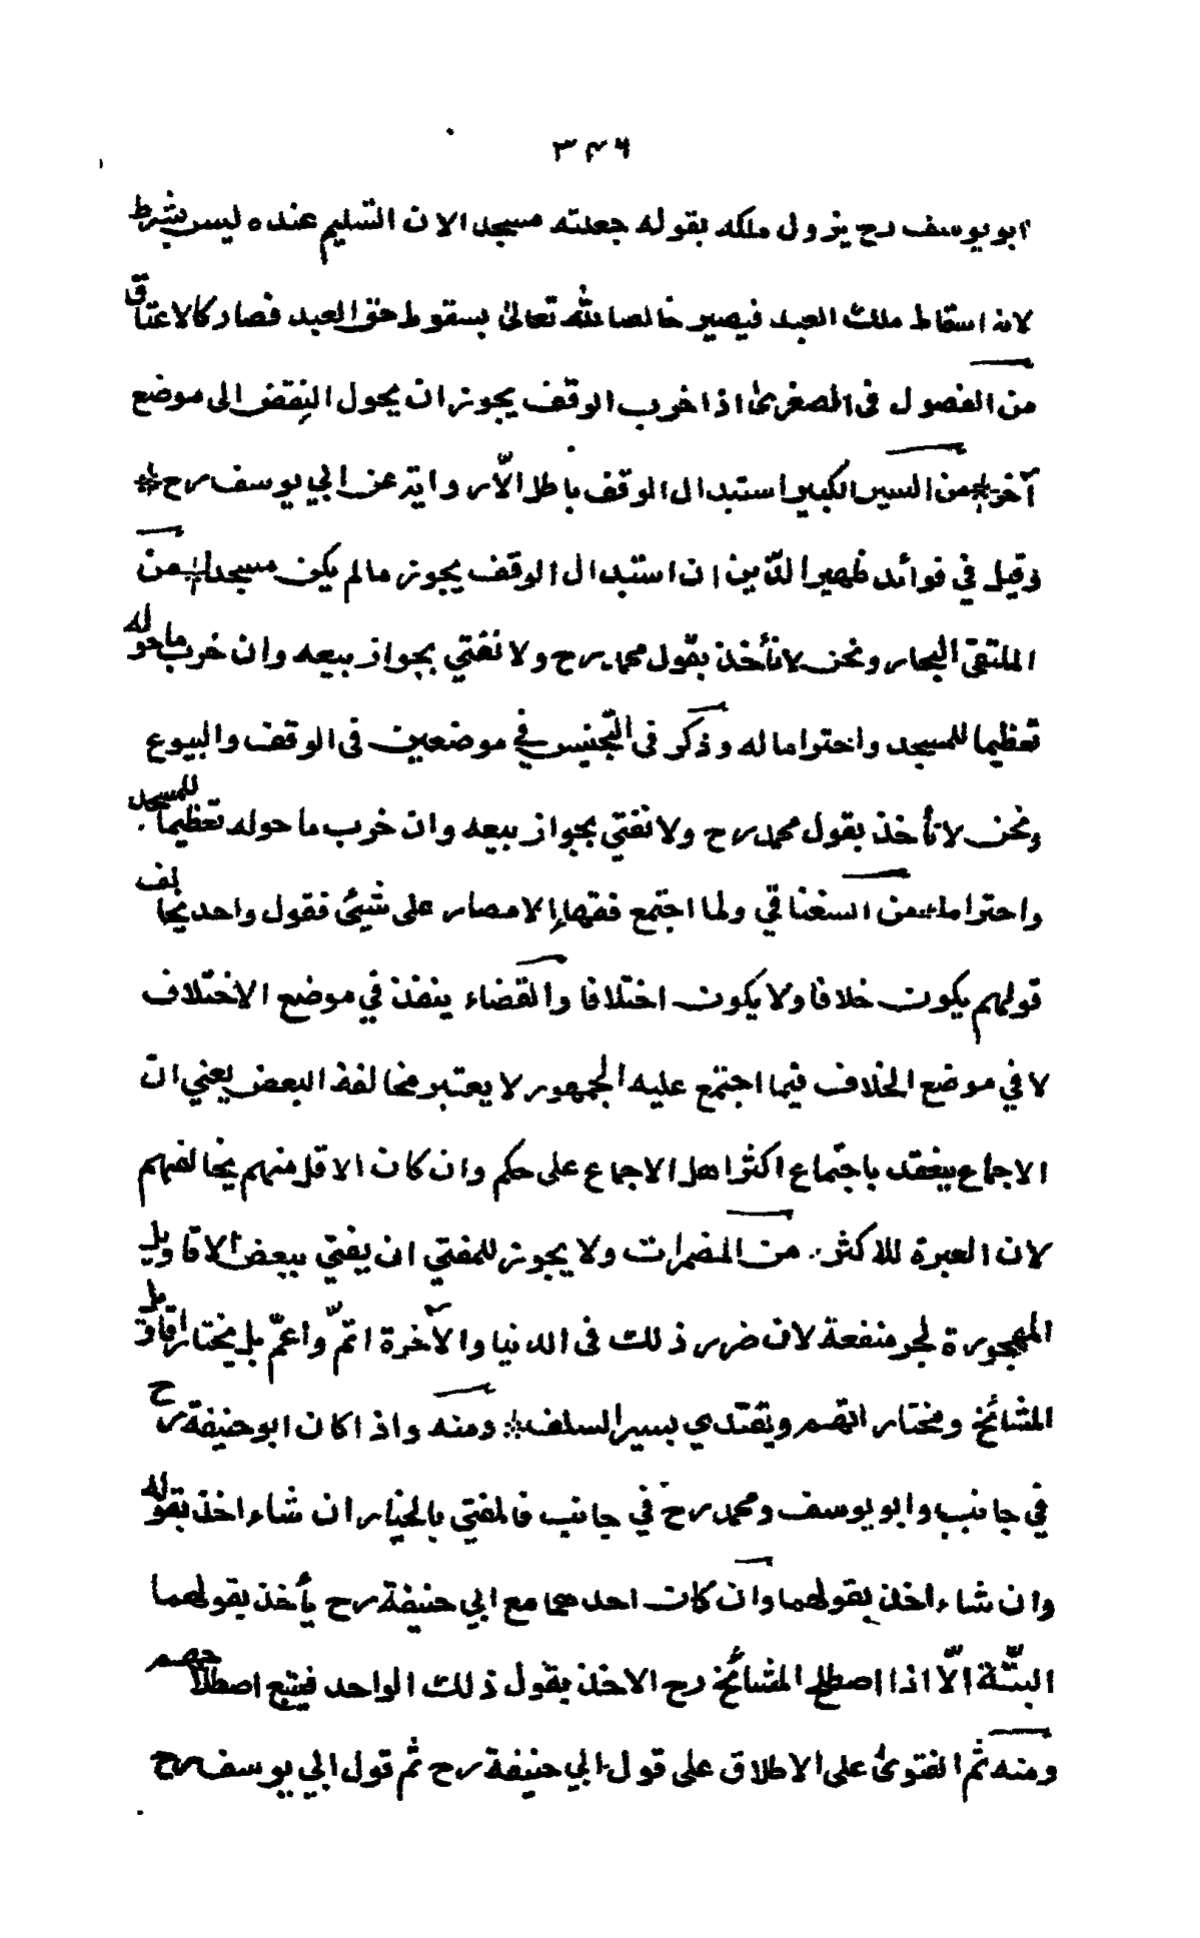 ٣٤٦
ابو يوسف رح يزول ملكه بقوله جعلته مسجدا لان التسليم عنده ليس بشرط
لانه اسقاط ملك العبد فيصير خالصا لله تعالىٰ بسقوط حق العبد فصار كالاعتاق
من الفصول فى الصغرىٰ اذا خرب الوقف يجوز ان يحول النقض الى موضع
آخر * من السير الكبير استبدال الوقف باطل الّا رواية عن ابي يوسف رح *
وقيل في فوائد ظهير الدّين ان استبدال الوقف يجوز مالم يكن مسجدا * من
الملتقى البحار ونحن لانأخذ بقول محمد رح ولا نفتي بجواز بيعه وان خرب ما حوله
تعظيما للمسجد واحتراما له وذكر فى التجنيس في موضعين فى الوقف والبيوع
ونحن لانأخذ بقول محمد رح ولا نفتي بجواز بيعه وان خرب ما حوله تعظيما للمسجد
واحتراما * من السغناقي ولما اجتمع فقهاء الامصار على شيئ فقول واحد يخالف
قولهم يكون خلافا ولا يكون اختلافا والقضاء ينفذ في موضع الاختلاف
لا في موضع الخلاف فيما اجتمع عليه الجمهور لا يعتبر مخالفة البعض يعني ان
الاجماع ينعقد باجتماع اكثر اهل الاجماع على حكم وان كان الاقل منهم يخالفهم
لان العبرة للاكثر. من المضمرات ولا يجوز للمفتي ان يفتي ببعض الاقاويل
المهجورة لجر منفعة لان ضرر ذلك فى الدنيا والآخرة اتمّ واعمّ بل يختار اقاويل
المشائخ ومختار اتهم ويقتدي بسير السلف * ومنه واذا كان ابوحنيفة رح
في جانب وابو يوسف ومحمد رح في جانب فالمفتي بالخيار ان شاء اخذ بقوله
وان شاء اخذ بقولهما وان كان احدهما مع ابي حنيفة رح يأخذ بقولهما
البتّة الّا اذا اصطلح المشائخ رح الاخذ بقول ذلك الواحد فيتبع اصطلاحهم
ومنه ثم الفتوىٰ على الاطلاق على قول ابي حنيفة رح ثم قول ابي يوسف رح